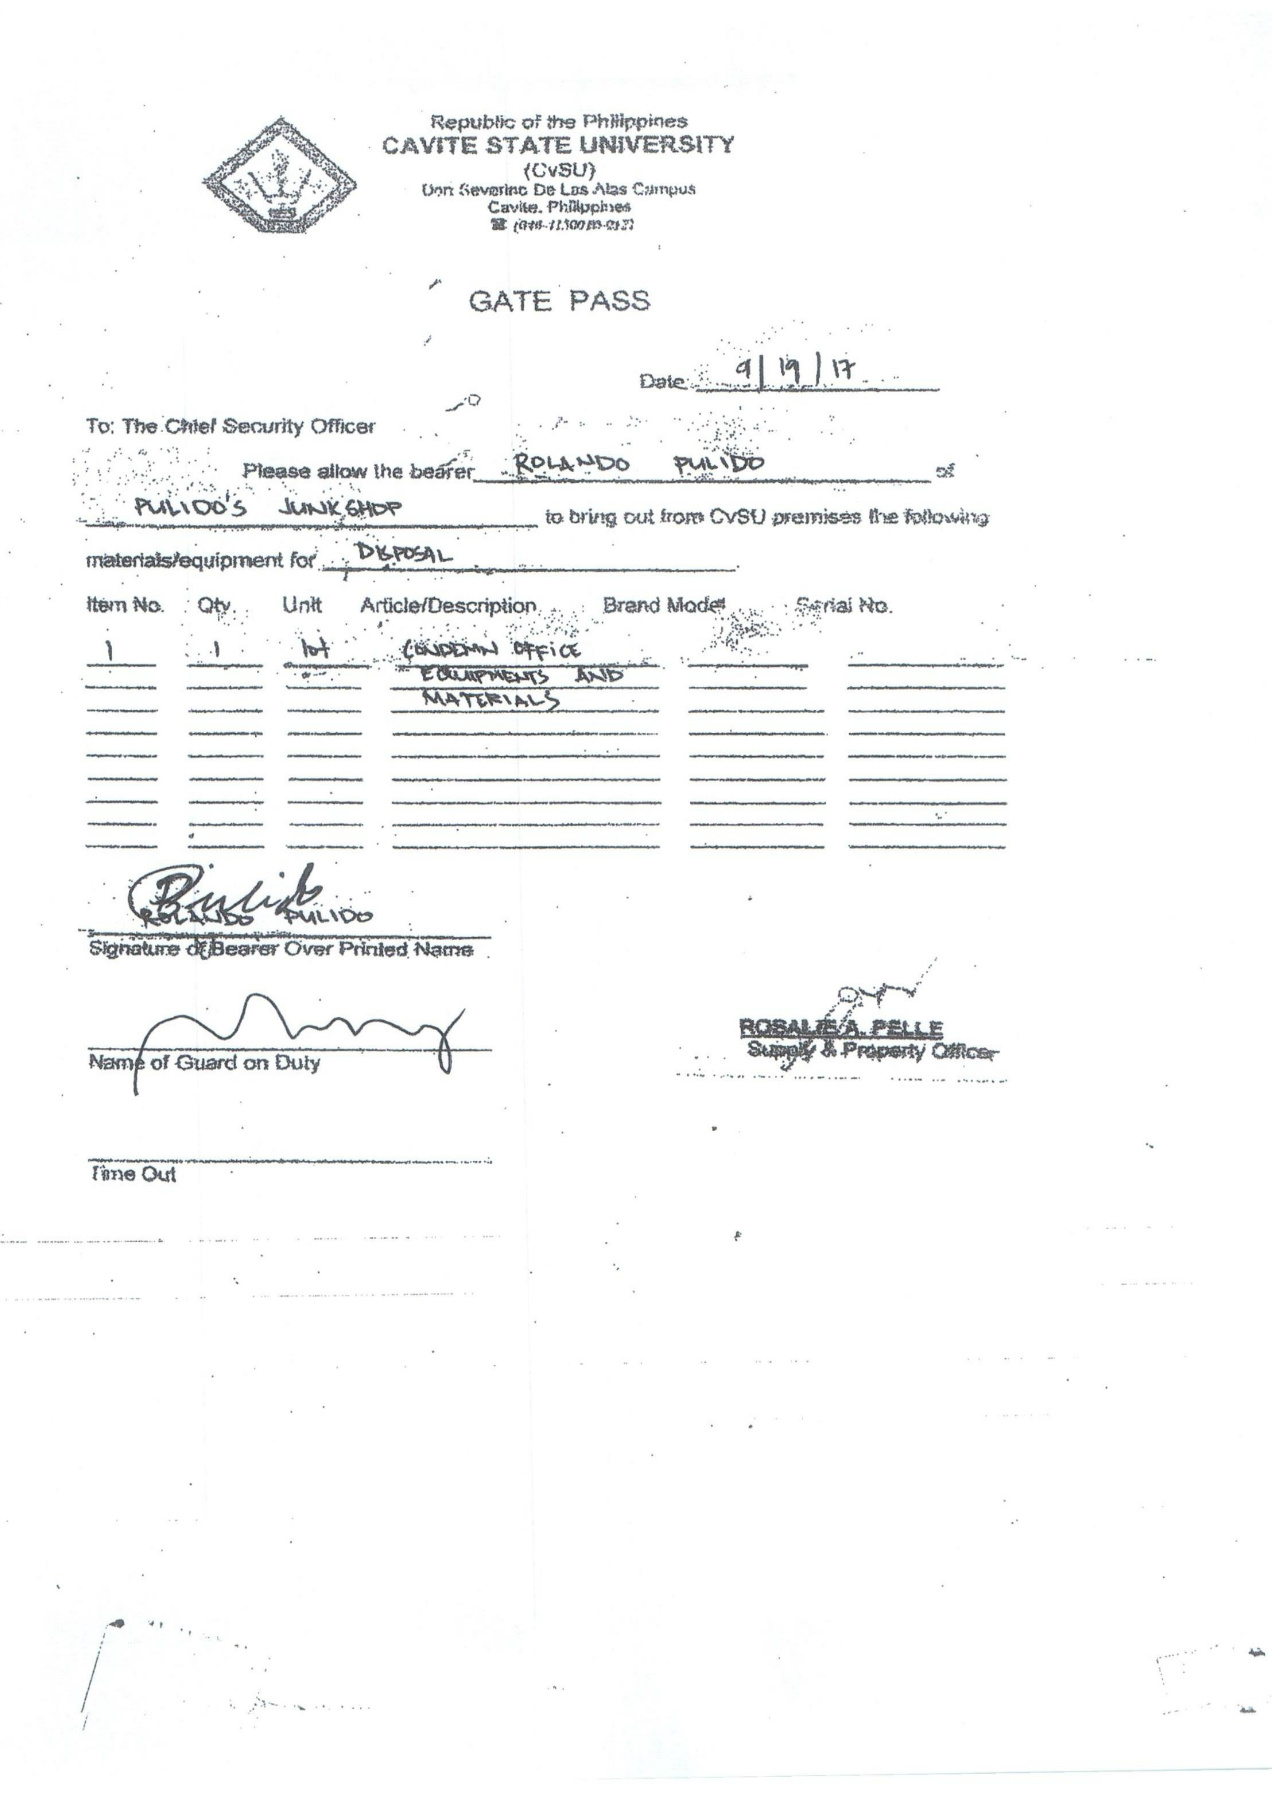 Republic of the Philippines
CAVITE STATE UNIVERSITY
(CvSU)
Don Severino De Las Alas Campus
Cavite, Philippines
GATE PASS
Date: 9/19/17
To: The Chief Security Officer
Please allow the bearer ROLANDO PULIDO of
PULIDO'S JUNKSHOP to bring out from CvSU premises the following
materials/equipment for DISPOSAL
Item No. Qty. Unit Article/Description Brand Model Serial No.
1 1 lot CONDEMN OFFICE
EQUIPMENTS AND
MATERIALS
Pulido
ROLANDO PULIDO
Signature of Bearer Over Printed Name
ROSALIE A. PELLE
Supply & Property Officer
Name of Guard on Duty
Time Out